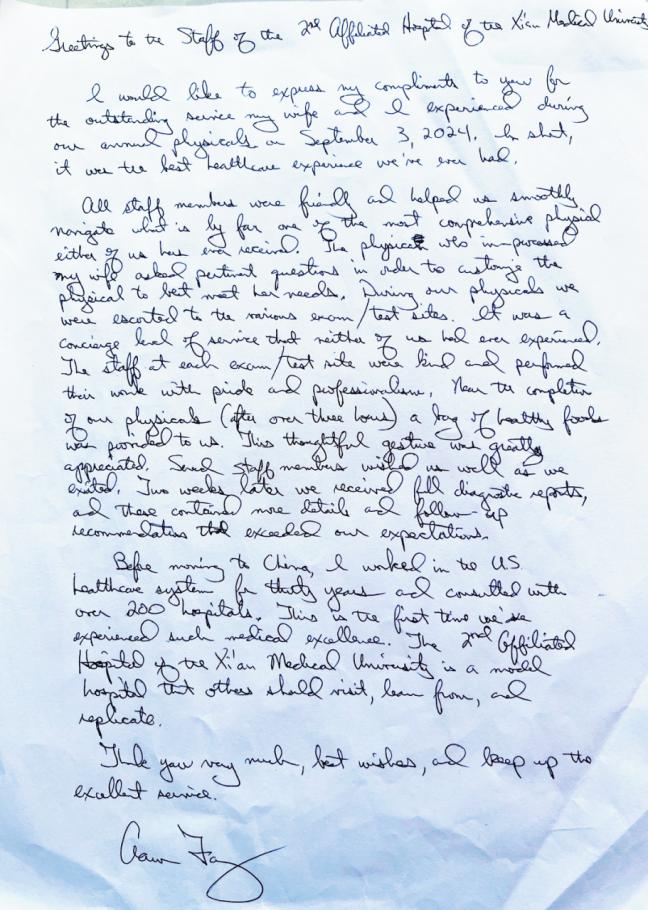 Greetings to the Staff of the 2nd Affiliated Hospital of the Xi'an Medical University
I would like to express my compliments to you for
the outstanding service my wife and I experienced during
our annual physicals on September 3, 2024. In short,
it was the best healthcare experience we've ever had.
All staff members were friendly and helped us smoothly
navigate what is by far one of the most comprehensive physical
either of us has ever received. The physician who in-processed
my wife asked pertinent questions in order to customize the
physical to best meet her needs. During our physicals we
were escorted to the various exam/test sites. It was a
concierge level of service that neither of us had ever experienced.
The staff at each exam/test site were kind and performed
their work with pride and professionalism. Near the completion
of our physicals (after over three hours) a bag of healthy foods
was provided to us. This thoughtful gesture was greatly
appreciated. Several staff members wished us well as we
exited. Two weeks later we received full diagnostic reports,
and these contained more details and follow-up
recommendations that exceeded our expectations.
Before moving to China, I worked in the U.S.
healthcare system for thirty years and consulted with
over 200 hospitals. This is the first time we've
experienced such medical excellence. The 2nd Affiliated
Hospital of the Xi'an Medical University is a model
hospital that others should visit, learn from, and
replicate.
Thank you very much, best wishes, and keep up the
excellent service.